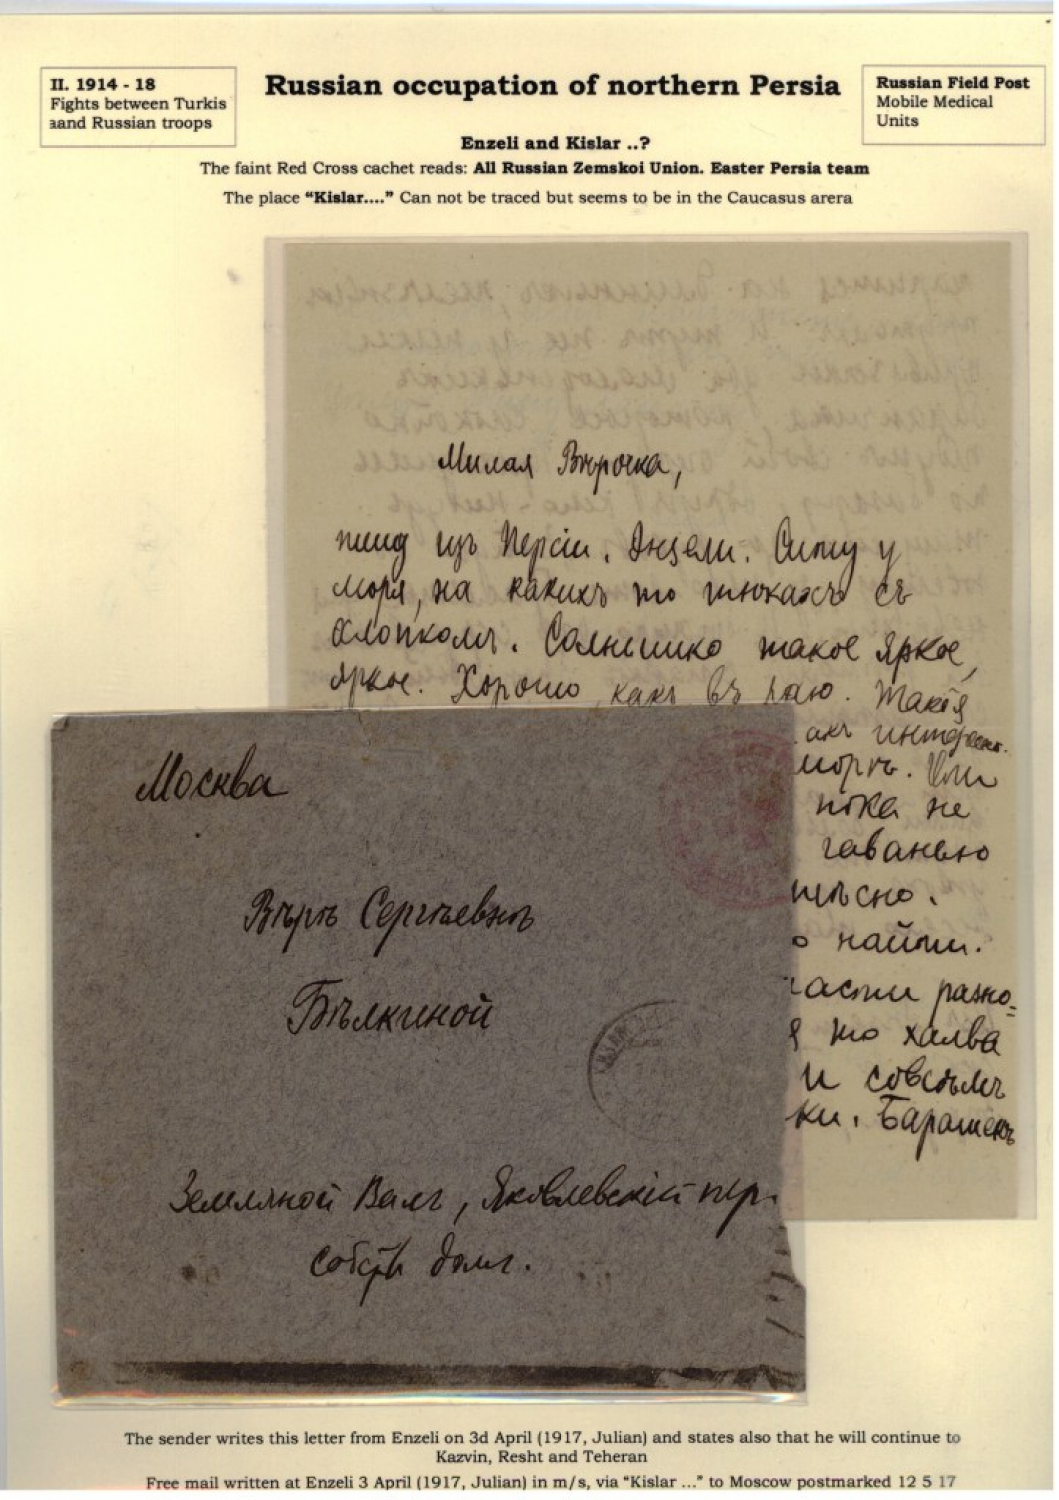 II. 1914 - 18
Fights between Turkis
aand Russian troops
Russian occupation of northern Persia
Russian Field Post
Mobile Medical
Units
Enzeli and Kislar ..?
The faint Red Cross cachet reads: All Russian Zemskoi Union. Easter Persia team
The place “Kislar....” Can not be traced but seems to be in the Caucasus arera
Милая Вѣрочка,
пишу изъ Персіи. Энзели. Сижу у
моря, на какихъ то тюкахъ съ
хлопкомъ. Солнышко такое яркое,
яркое. Хорошо, какъ въ раю. Такія
акъ интересн.
морѣ.
пока не
гаванью
тѣсно.
о найти.
ласти разно-
я то халва
и совсѣмъ
ки. Барашекъ
Москва
Вѣрѣ Сергѣевнѣ
Бѣлкиной
Земляной Валъ, Яковлевскій пер.
собств домъ.
The sender writes this letter from Enzeli on 3d April (1917, Julian) and states also that he will continue to
Kazvin, Resht and Teheran
Free mail written at Enzeli 3 April (1917, Julian) in m/s, via “Kislar ...” to Moscow postmarked 12 5 17